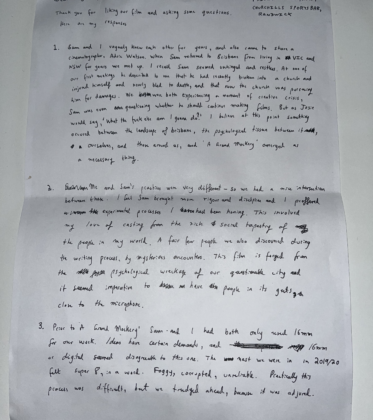 Thank you for liking our film and asking some questions.
Here are my responses
CHURCHILLS SPORTSBAR,
1. Sam and I vaguely knew each other for years, and also came to share a
cinematographer,              when Sam returned to Brisbane from living in VIC and
NSW for years we met up. I recall Sam seemed         and restless. At one of
our first meetings he described to me that he had recently broken into a church and
injured himself and nearly bled to death, and that now the church was pursuing
him for damages. We both were both experiencing a moment of creative crisis,
Sam was even questioning whether to should continue making films. But as
would say, 'What the fuck else am I gonna do?' I believe at this point something
occurred between the landscape of Brisbane, the psychological tissue between it
ourselves, and those around us, and A Grand Mockery emerged as
a necessary thing.
2. Me and Sam's practices were very different - so we had a nice intersection
between them. I felt Sam brought more rigour and discipline and I proffered
experimental processes I had been honing. This involved
my love of casting from the rich social tapestry of
the people in my world. A fair few people we also discovered during
the writing process, by mysterious encounters. This film is forged from
the psychological wreckage of our questionable city and
it seemed imperative to have the people in its guts
close to the microphone.
3. Prior to A Grand Mockery Sam and I had both only used 16mm
for our work. Ideas have certain demands, and 16mm
or digital seemed disagreeable to this one. The                we were in in 2019/20
felt super 8, in a work. Foggy, corrupted, unreliable. Practically this
process was difficult, but we trudged ahead, because it was absurd.